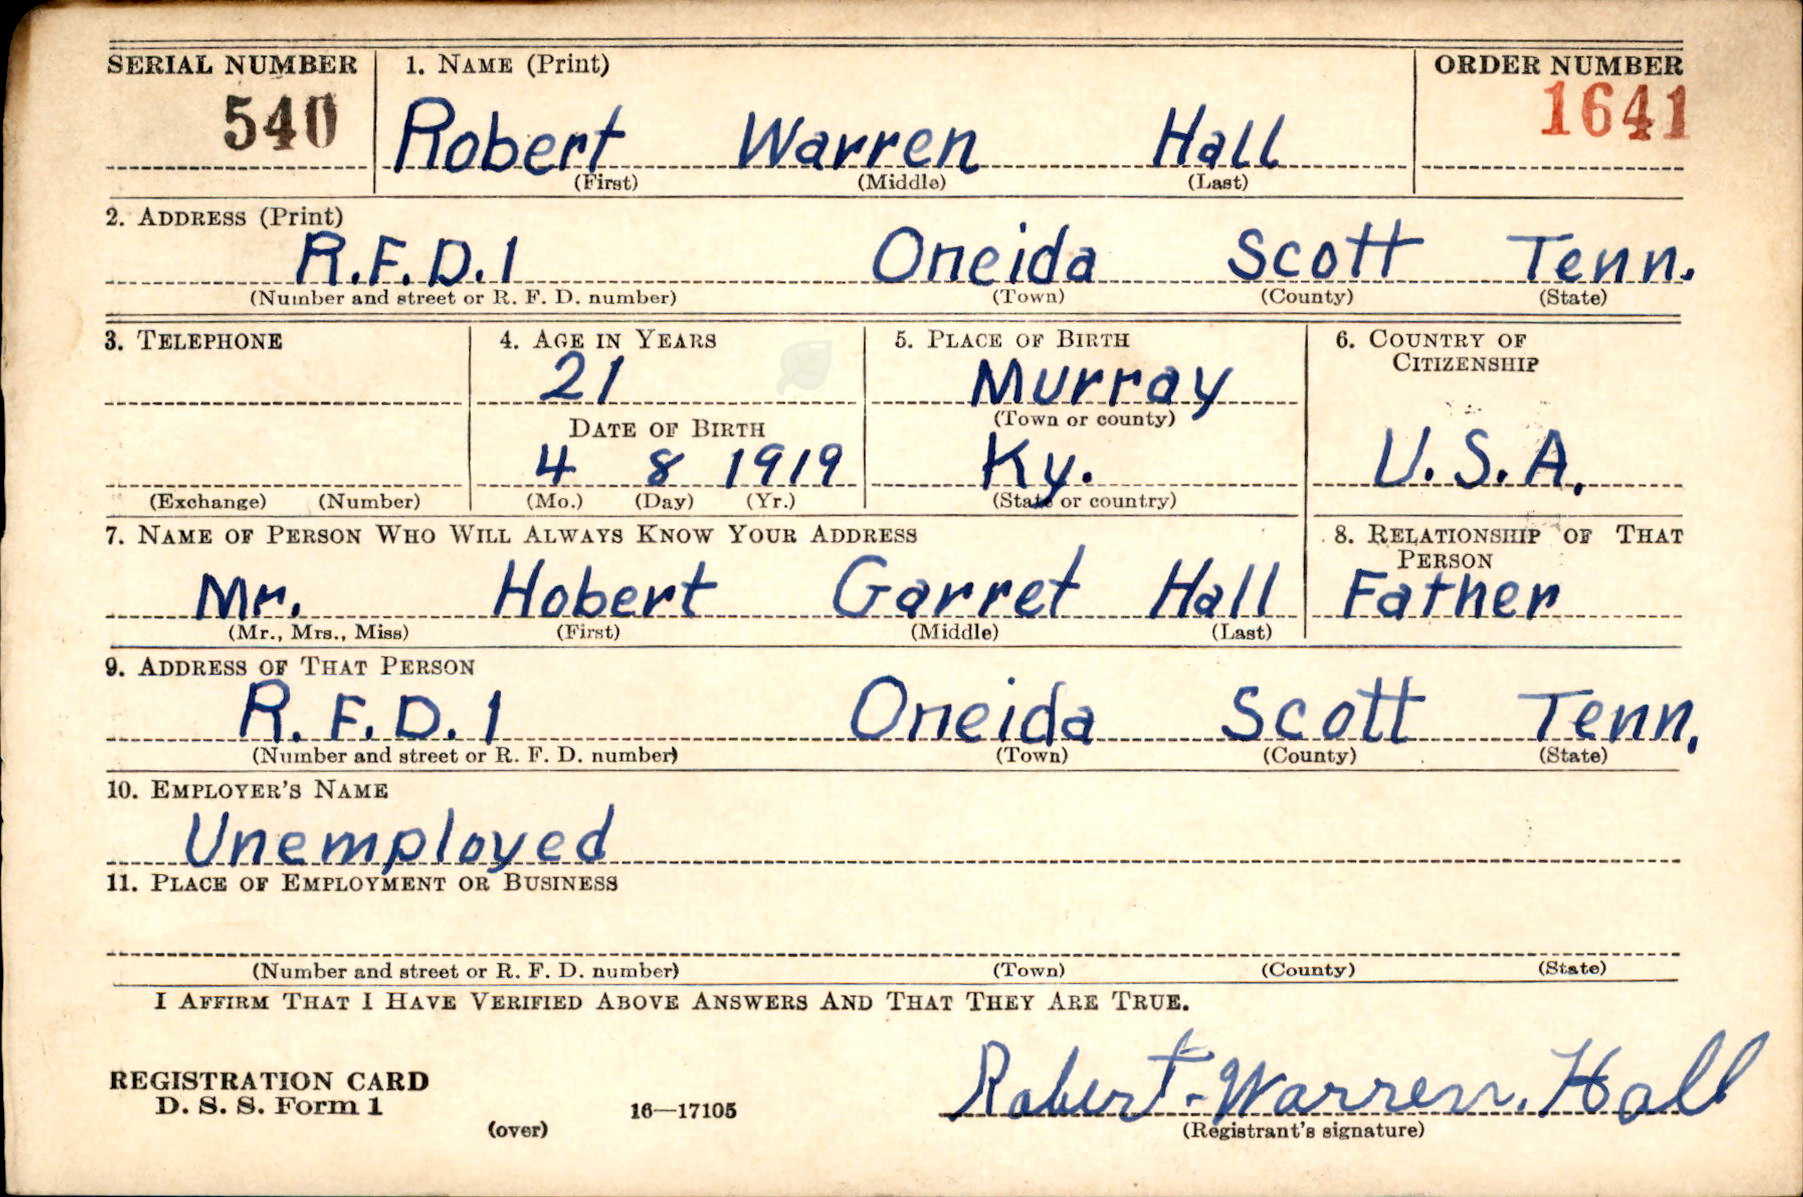 SERIAL NUMBER 1. NAME (Print) ORDER NUMBER
540 Robert Warren Hall 1641
(First) (Middle) (Last)
2. ADDRESS (Print)
R.F.D.1 Oneida Scott Tenn.
(Number and street or R. F. D. number) (Town) (County) (State)
3. TELEPHONE 4. AGE IN YEARS 5. PLACE OF BIRTH 6. COUNTRY OF
CITIZENSHIP
21 Murray
(Town or county)
DATE OF BIRTH
4 8 1919 Ky. U.S.A.
(Exchange) (Number) (Mo.) (Day) (Yr.) (State or country)
7. NAME OF PERSON WHO WILL ALWAYS KNOW YOUR ADDRESS 8. RELATIONSHIP OF THAT
PERSON
Mr. Hobert Garret Hall Father
(Mr., Mrs., Miss) (First) (Middle) (Last)
9. ADDRESS OF THAT PERSON
R.F.D.1 Oneida Scott Tenn.
(Number and street or R. F. D. number) (Town) (County) (State)
10. EMPLOYER'S NAME
Unemployed
11. PLACE OF EMPLOYMENT OR BUSINESS
(Number and street or R. F. D. number) (Town) (County) (State)
I AFFIRM THAT I HAVE VERIFIED ABOVE ANSWERS AND THAT THEY ARE TRUE.
REGISTRATION CARD
D. S. S. Form 1 16—17105 Robert Warren Hall
(over) (Registrant's signature)